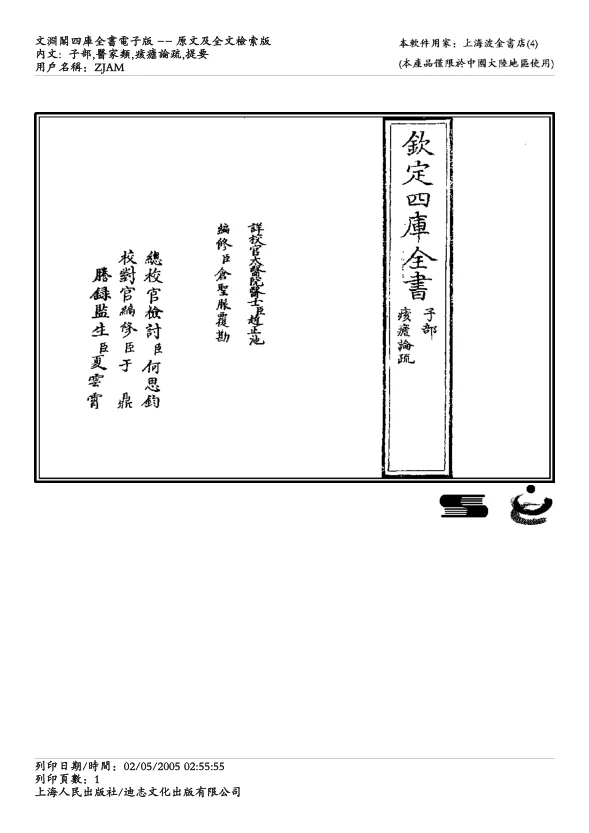 文淵閣四庫全書電子版 —— 原文及全文檢索版
內文: 子部,醫家類,痎瘧論疏,提要
用戶名稱: ZJAM
本軟件用家: 上海波金書店(4)
(本產品僅限於中國大陸地區使用)
欽定四庫全書
子部
痎瘧論疏
詳校官太醫院醫士臣趙正池
編修臣倉聖脈覆勘
總校官檢討臣何思鈞
校對官編修臣于鼎
謄錄監生臣夏雲霄
列印日期/時間: 02/05/2005 02:55:55
列印頁數: 1
上海人民出版社/迪志文化出版有限公司